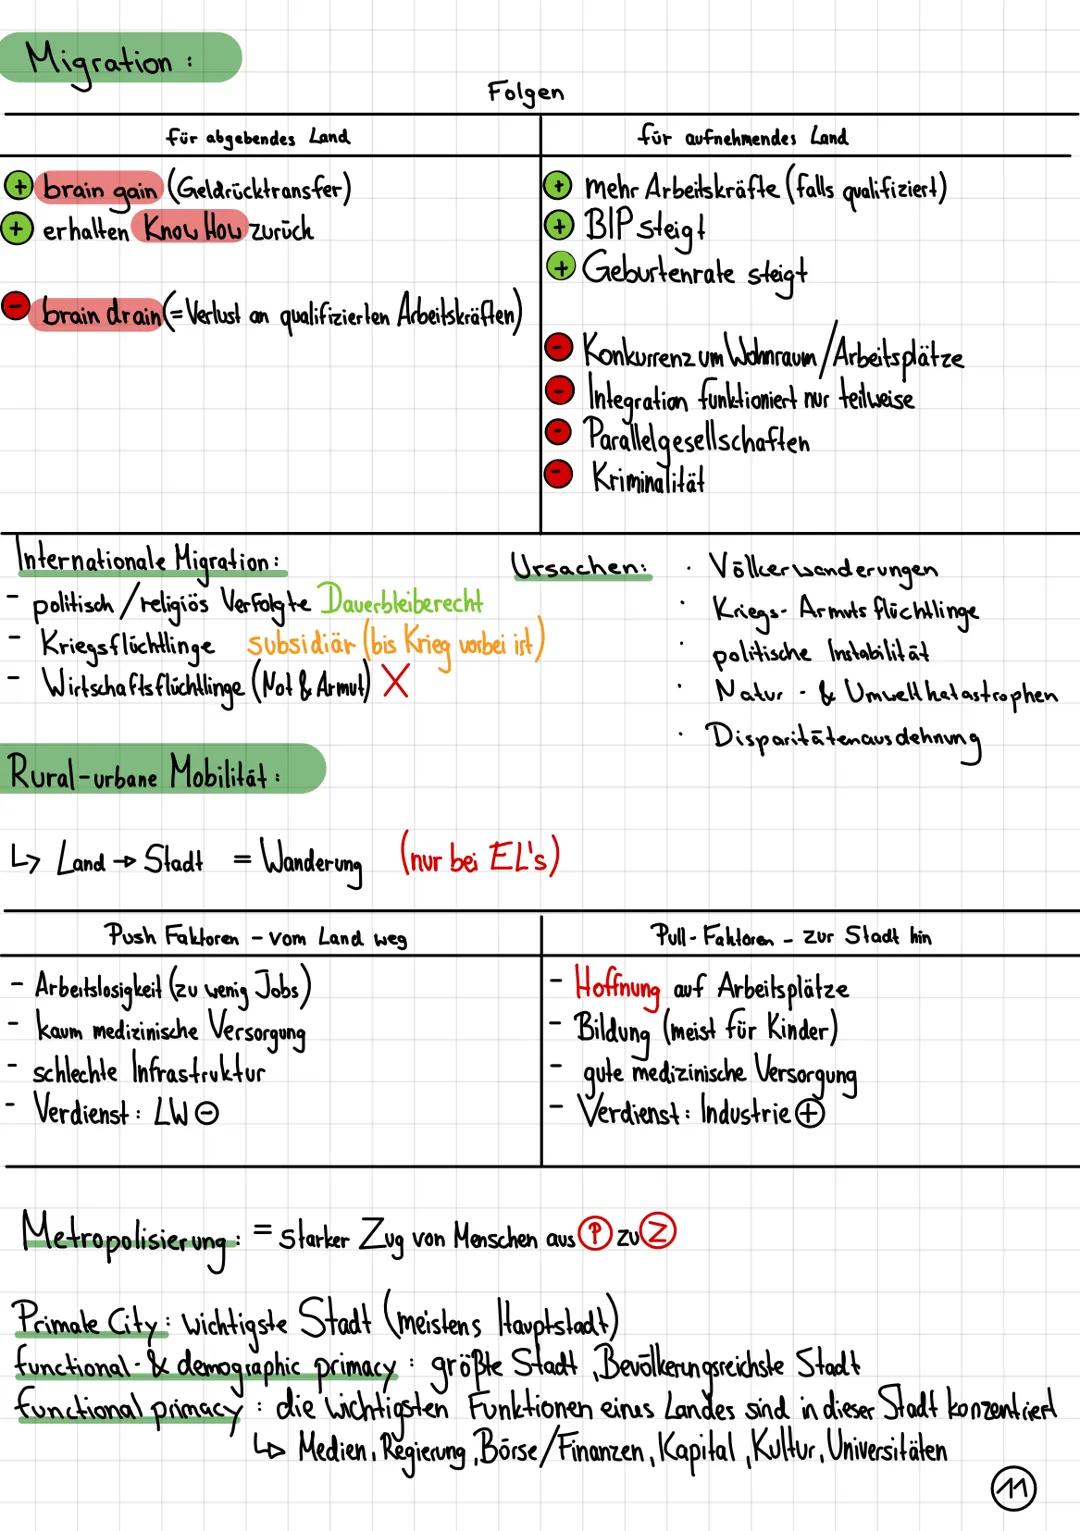 Migration :
Folgen
für abgebendes Land
für aufnehmendes Land
+ brain gain (Geldrücktransfer)
+ erhalten Know How zurück
- brain drain (= Verlust an qualifizierten Arbeitskräften)
+ mehr Arbeitskräfte (falls qualifiziert)
+ BIP steigt
+ Geburtenrate steigt
- Konkurrenz um Wohnraum / Arbeitsplätze
- Integration funktioniert nur teilweise
- Parallelgesellschaften
- Kriminalität
Internationale Migration :
- politisch / religiös Verfolgte Dauerbleiberecht
- Kriegsflüchtlinge subsidiär (bis Krieg vorbei ist)
- Wirtschaftsflüchtlinge (Not & Armut) X
Ursachen: · Völkerwanderungen
· Kriegs- Armutsflüchtlinge
· politische Instabilität
· Natur - & Umweltkatastrophen
· Disparitätenausdehnung
Rural-urbane Mobilität :
↳ Land → Stadt = Wanderung (nur bei EL's)
Push Faktoren - vom Land weg
Pull-Faktoren - zur Stadt hin
- Arbeitslosigkeit (zu wenig Jobs)
- kaum medizinische Versorgung
- schlechte Infrastruktur
- Verdienst : LW ⊖
- Hoffnung auf Arbeitsplätze
- Bildung (meist für Kinder)
- gute medizinische Versorgung
- Verdienst : Industrie ⊕
Metropolisierung : = starker Zug von Menschen aus Ⓟ zu Ⓩ
Primate City : wichtigste Stadt (meistens Hauptstadt)
functional - & demographic primacy : größte Stadt, Bevölkerungsreichste Stadt
functional primacy : die wichtigsten Funktionen eines Landes sind in dieser Stadt konzentriert
↳ Medien, Regierung, Börse / Finanzen, Kapital, Kultur, Universitäten
11